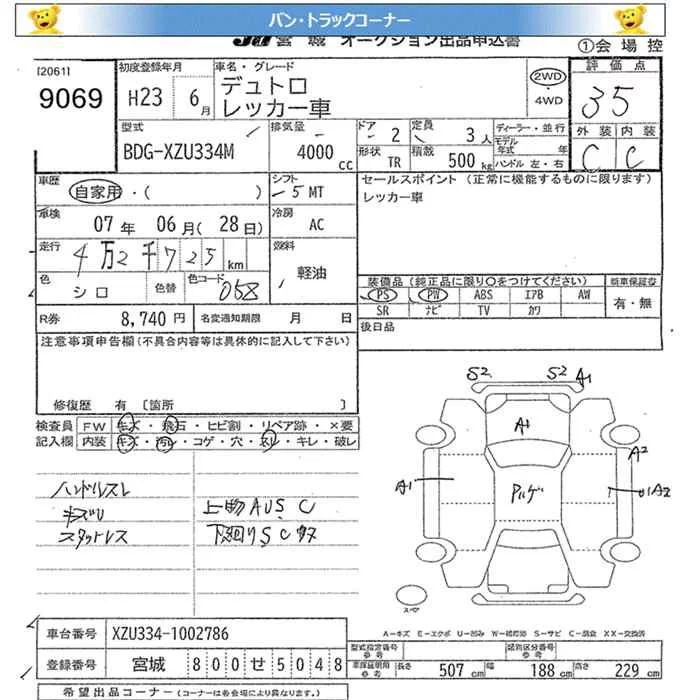 バン・トラックコーナー
宮城 オークション出品申込書
①会場控
[2061]
9069
初度登録年月
H23 6月
車名・グレード
デュトロ
レッカー車
2WD
・4WD
評価点
3.5
外装 内装
C C
型式
BDG-XZU334M
排気量
4000 cc
ドア 2
定員 3人
形状 TR
積載 500kg
ディーラー・並行
モデル年式 年式
ハンドル 左・右
車歴
自家用・( )
シフト
5 MT
セールスポイント (正常に機能するものに限ります)
レッカー車
車検
07年 06月(28日)
冷房
AC
走行
4万2千725km
燃料
軽油
色
シロ
色替
色コード
058
装備品 (純正品に限り○をつけてください)
新車保証書
PS PW ABS エアB AW
SR ナビ TV カワ
有・無
R券 8,740円
名変通知期限 月 日
後日品
注意事項申告欄(不具合内容等は具体的に記入して下さい)
修復歴 有 〔箇所 〕
検査員記入欄
FW キズ・飛石・ヒビ割・リペア跡・×要
内装 キズ・汚レ・コゲ・穴・スレ・キレ・破レ
ハンドルスレ
キズU
スタットレス
上物AUS C
下廻りSC
S2 S2 A1
A1
A2
A1
アルゲ
U1A2
スペア
A-キズ E-エクボ U-凹み W-補修跡 S-サビ C-腐食 XX-交換済
車台番号 XZU334-1002786
登録番号 宮城 800せ5048
型式指定番号 参考
類別区分番号 参考
車庫証明用 参考
長さ 507cm
幅 188cm
高さ 229cm
希望出品コーナー (コーナーは各会場により異なります。)